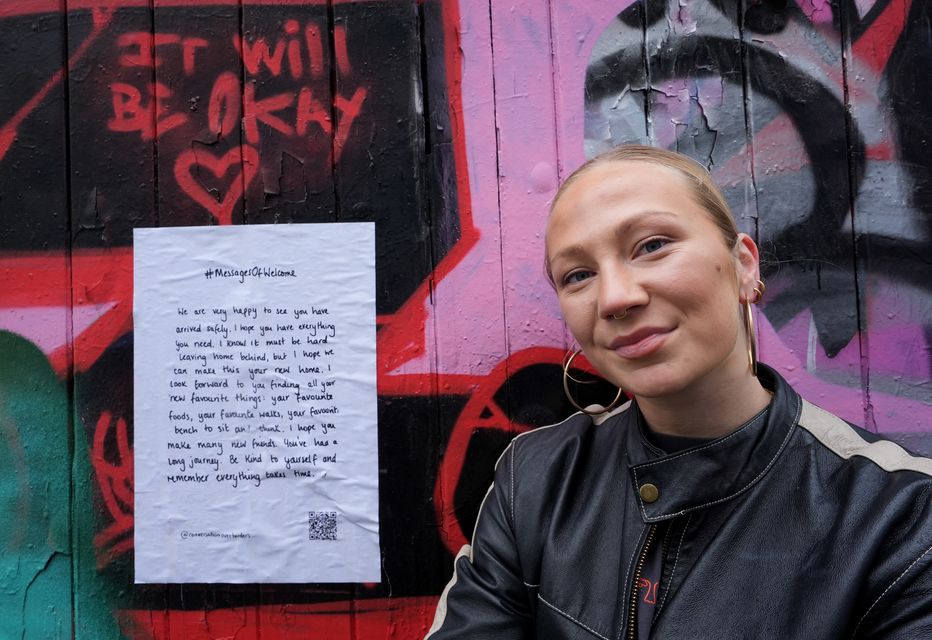 IT will
BE OKAY
#MessagesOfWelcome
We are very happy to see you have
arrived safely. I hope you have everything
you need. I know it must be hard
leaving home behind, but I hope we
can make this your new home. I
look forward to you finding all your
new favourite things: your favourite
foods, your favourite walks, your favourite
bench to sit an' think. I hope you
make many new friends. You've had a
long journey. Be kind to yourself and
remember everything takes time.
@conversationoverborders